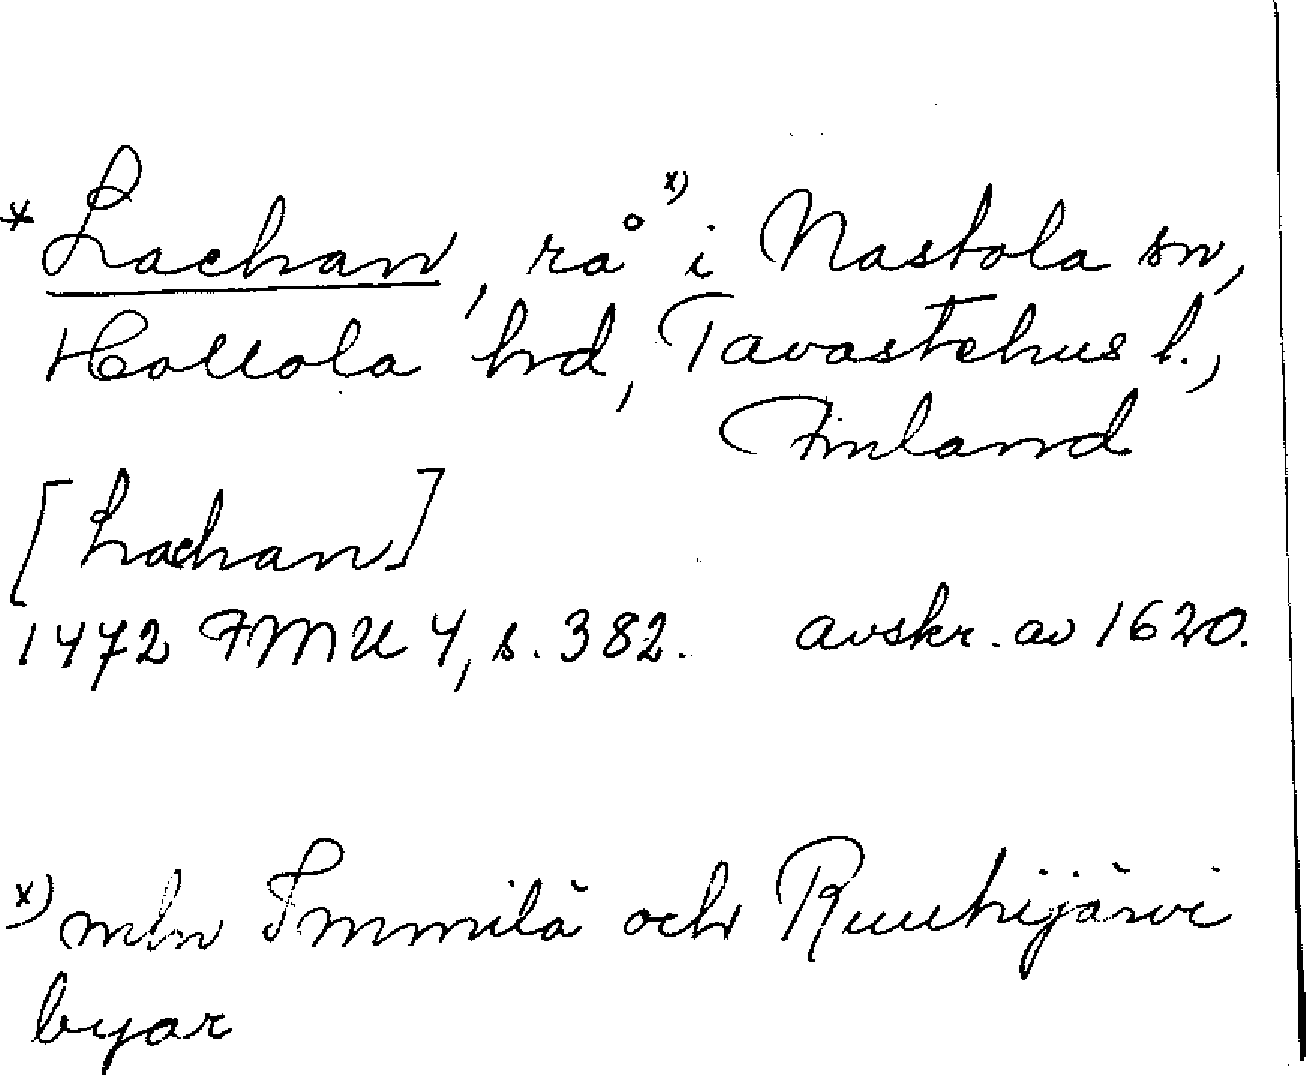 * Lachan, rå x) i Nastola sn,
Hollola hd, Tavastehus l.,
Finland
[Lachan]
1472 FMU 4, s. 382. avskr. av 1620.
x) mln Immilä och Ruuhijärvi
byar